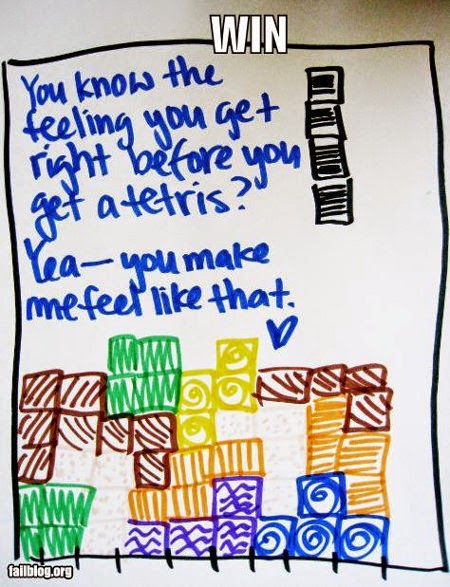 WIN
You know the
feeling you get
right before you
get a tetris?
Yea—you make
me feel like that.
failblog.org